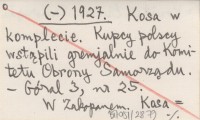 (-) 1927. Kosa w
komplecie. Kupcy polscy
wstąpili gremjalnie do Komi-
tetu Obrony Samorządu.
- Góral 3, nr 25.
W Zakopanem. Kosa =